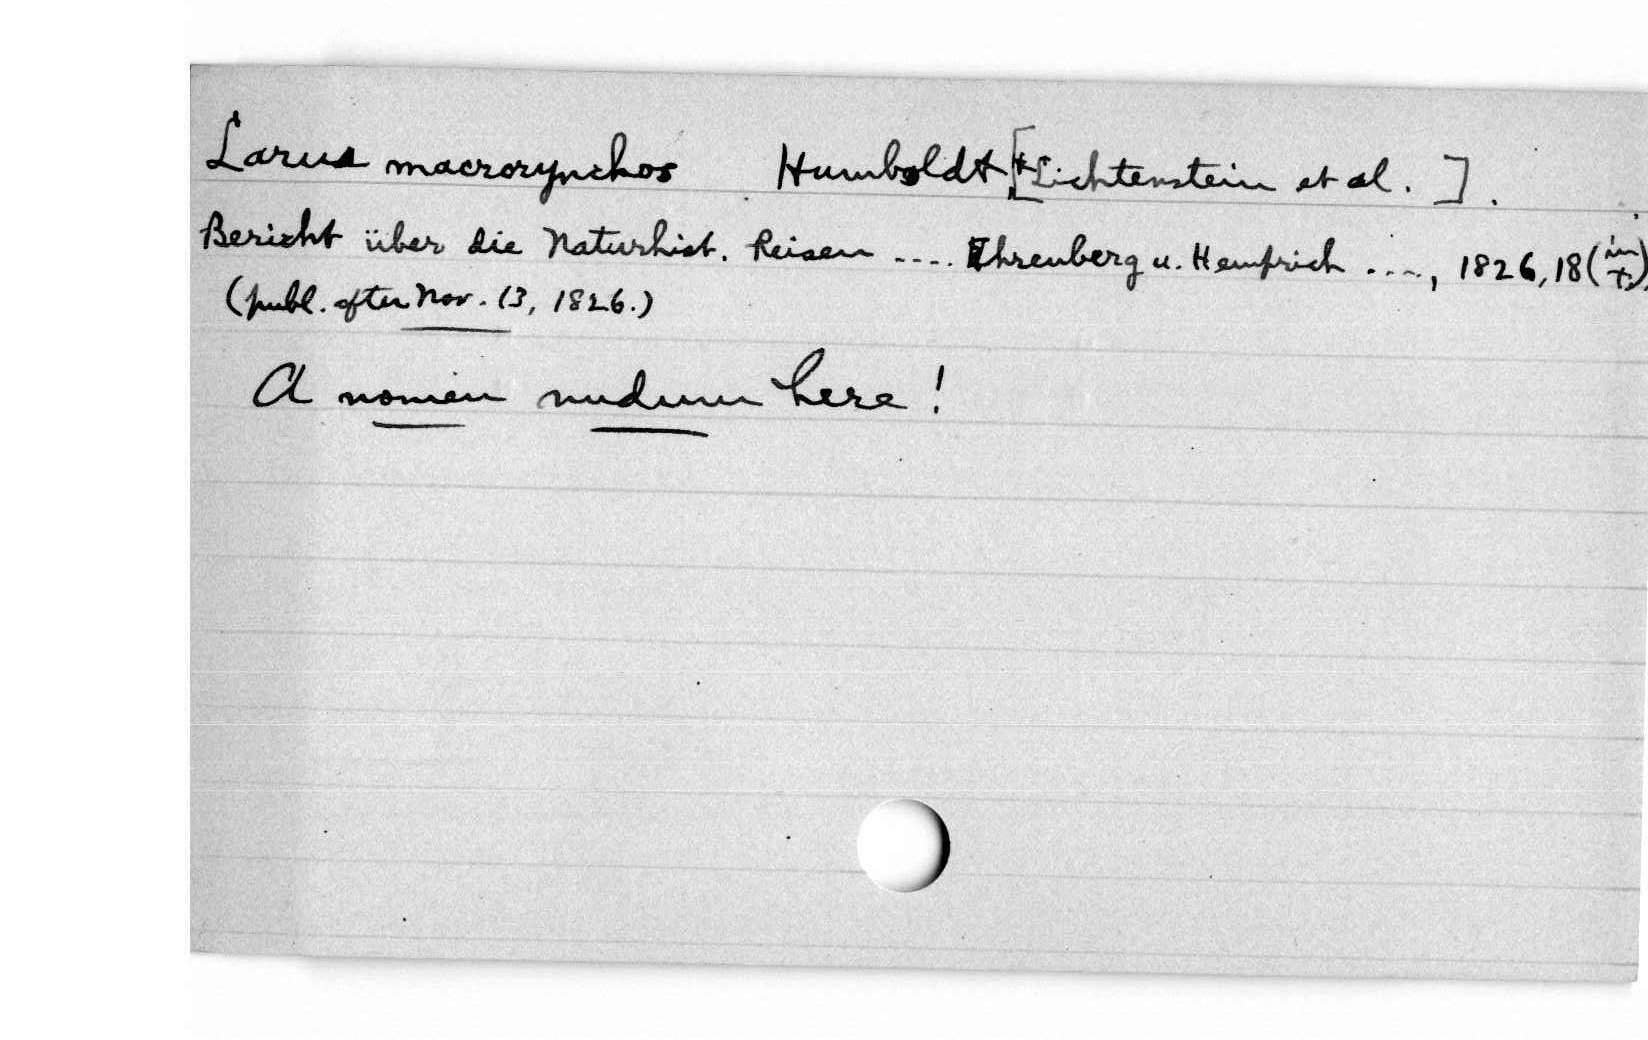 Larus macrorynchos Humboldt, [+ Lichtenstein et al. ].
Bericht über die Naturhist. Reisen .... Ehrenberg u. Hemprich ...., 1826, 18 (in t.)
(publ. after Nov. 13, 1826.)
A nomen nudum here!